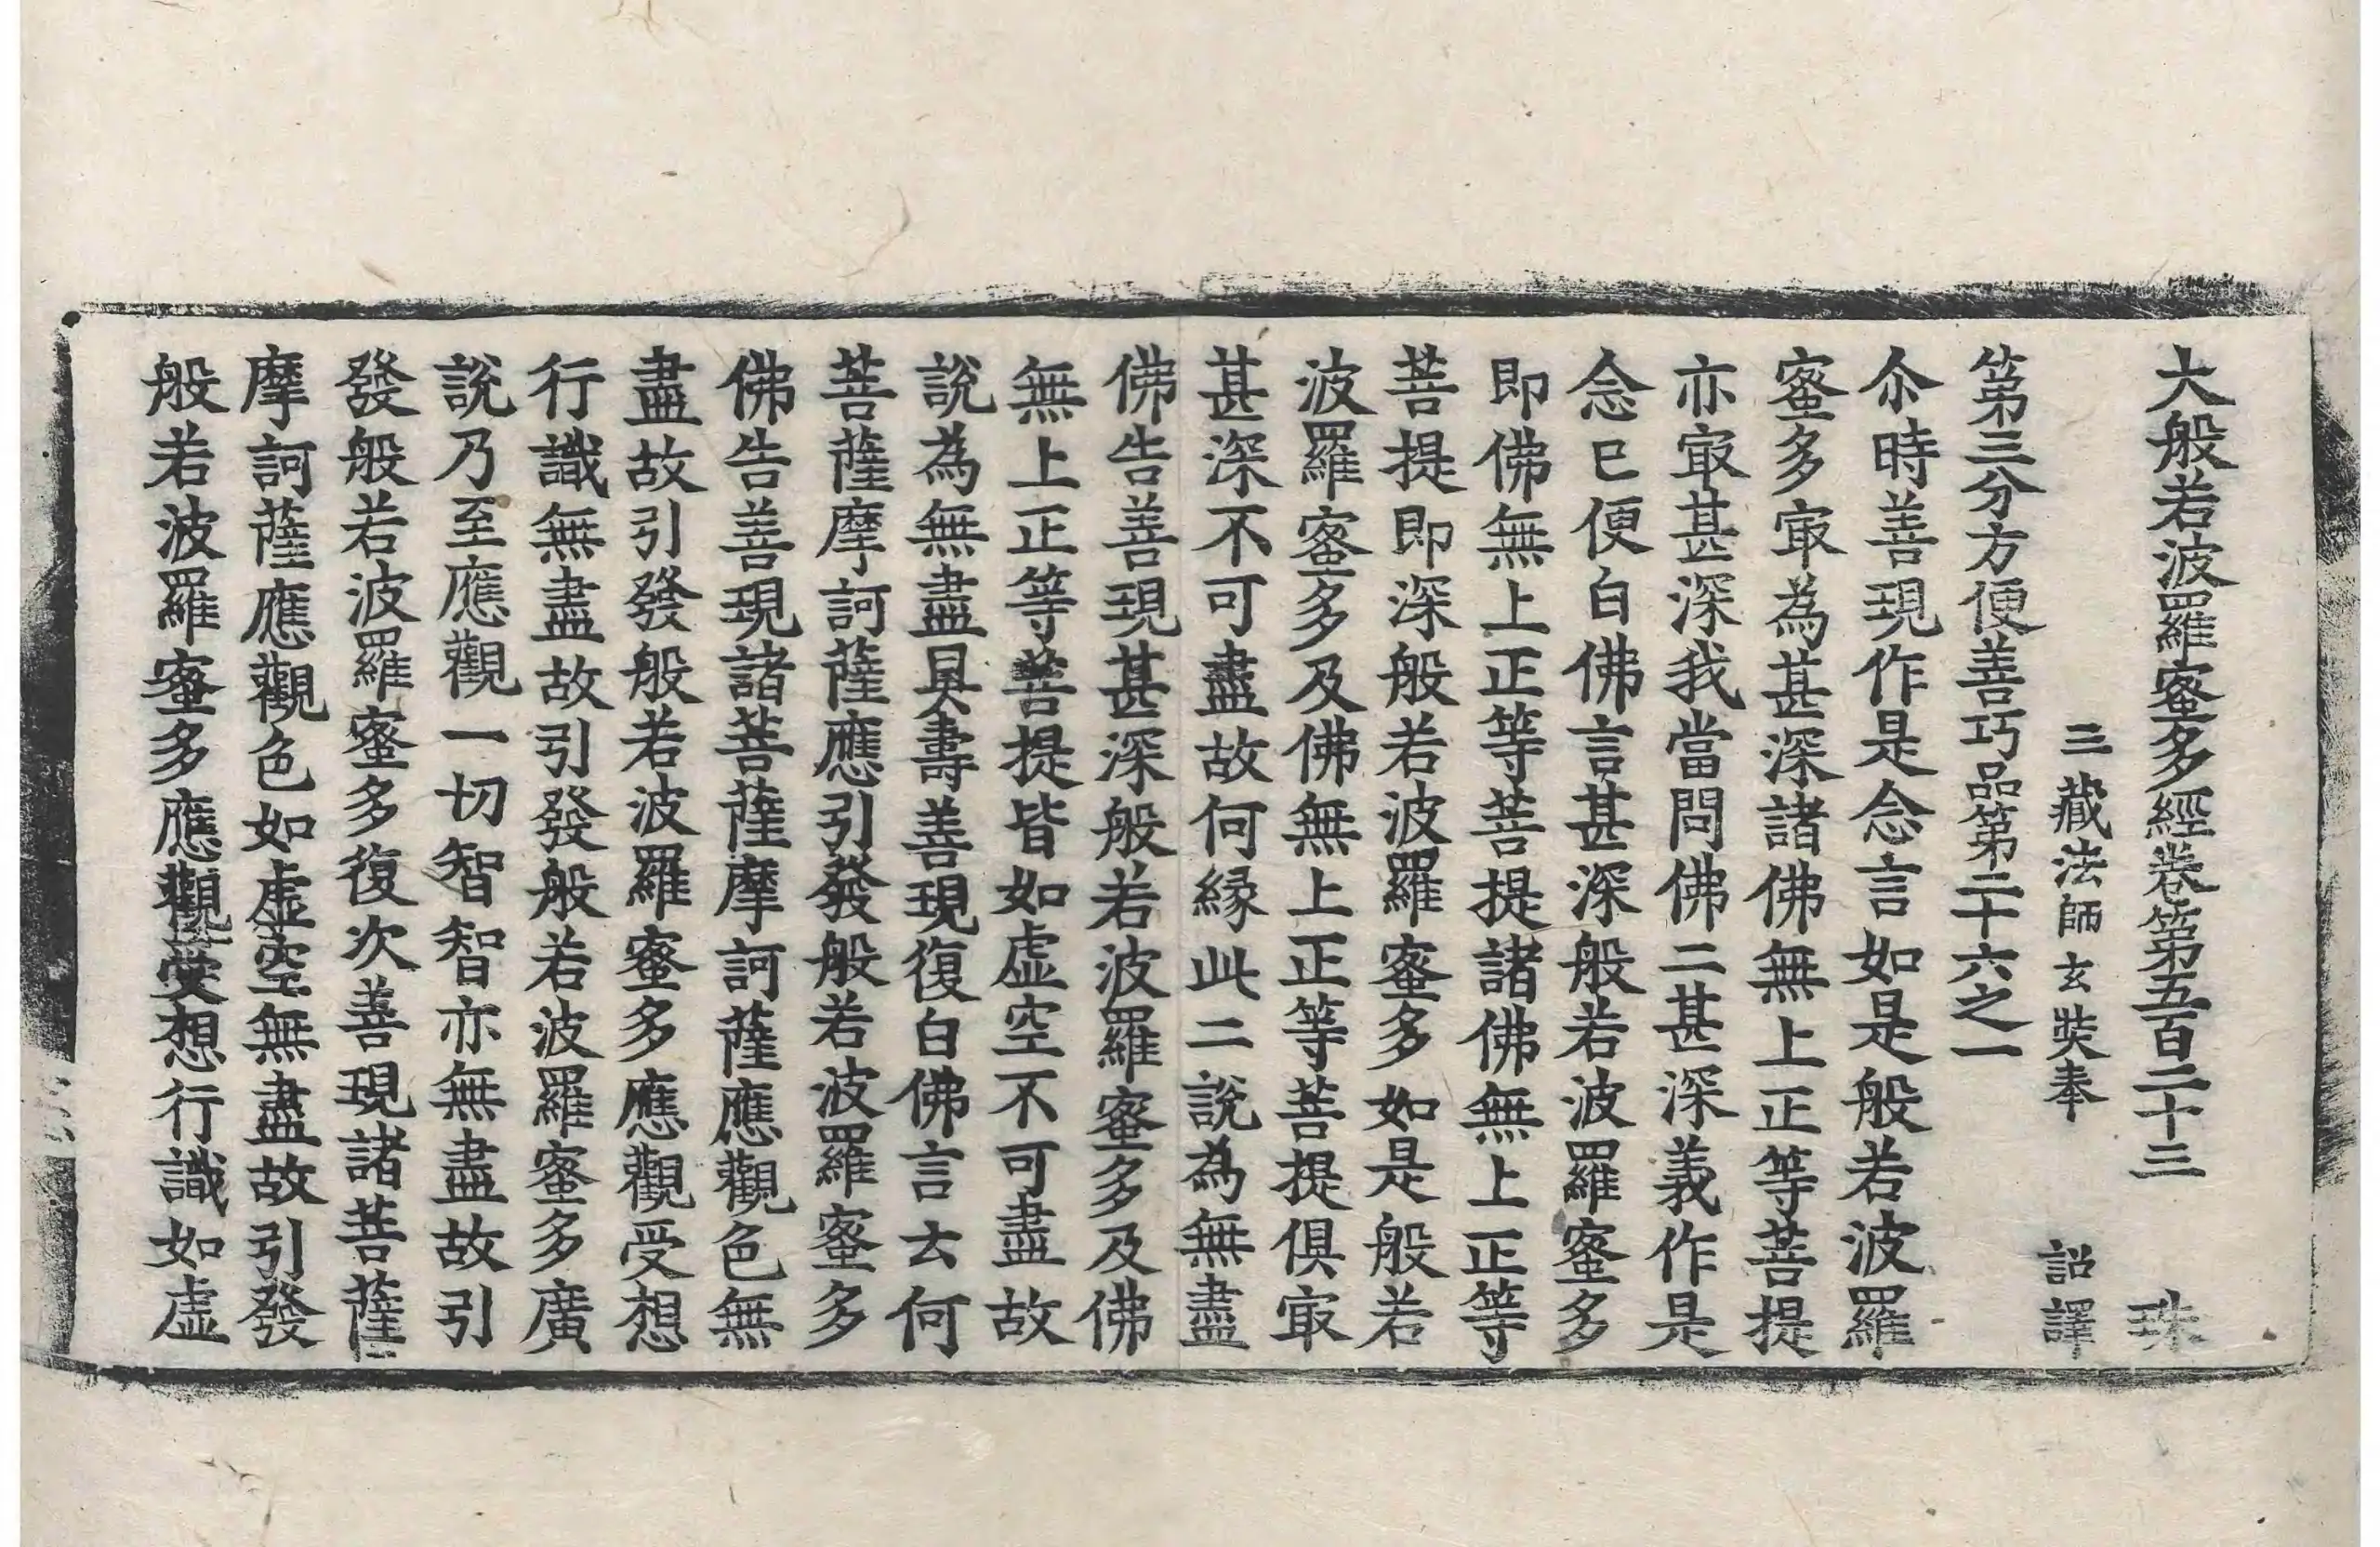 大般若波羅蜜多經卷第五百二十三 珠
三藏法師玄奘奉 詔譯
第三分方便善巧品第二十六之一
尒時善現作是念言如是般若波羅
蜜多㝡為甚深諸佛無上正等菩提
亦㝡甚深我當問佛二甚深義作是
念已便白佛言甚深般若波羅蜜多
即佛無上正等菩提諸佛無上正等
菩提即深般若波羅蜜多如是般若
波羅蜜多及佛無上正等菩提俱㝡
甚深不可盡故何緣此二說為無盡
佛告善現甚深般若波羅蜜多及佛
無上正等菩提皆如虛空不可盡故
說為無盡具壽善現復白佛言云何
菩薩摩訶薩應引發般若波羅蜜多
佛告善現諸菩薩摩訶薩應觀色無
盡故引發般若波羅蜜多應觀受想
行識無盡故引發般若波羅蜜多廣
說乃至應觀一切智智亦無盡故引
發般若波羅蜜多復次善現諸菩薩
摩訶薩應觀色如虛空無盡故引發
般若波羅蜜多應觀受想行識如虛